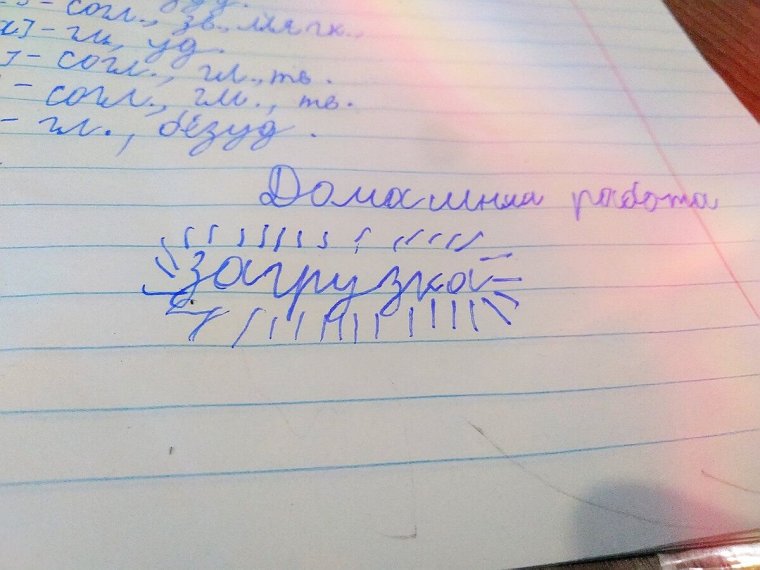 - согл., зв., мягк.
] - гл., уд.
] - согл., гл., тв.
- согл., гл., тв.
- гл., безуд.
Домашняя работа
загрузка